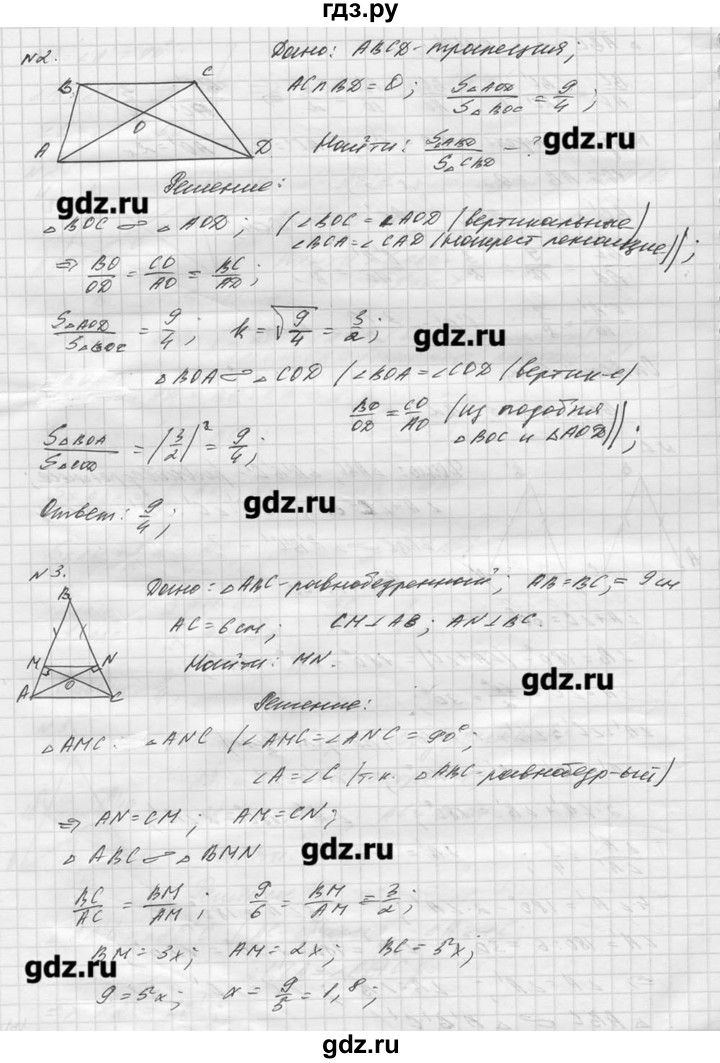 гдз.ру
№2.
Дано: ABCD - трапеция;
B C O A D
AC∩BD = O; S△AOD/S△BOC = 9/4;
Найти: S△ABD/S△CBD - ?
gdz.ru
Решение:
gdz.ru
△BOC ∽ △AOD; (∠BOC = ∠AOD (вертикальные)
∠BCA = ∠CAD (накрест лежащие));
⇒ BO/OD = CO/AO = BC/AD;
S△AOD/S△BOC = 9/4; k = √9/4 = 3/2;
gdz.ru
△BOA ∽ △COD (∠BOA = ∠COD (вертик-е)
BO/OD = CO/AO (из подобия
△BOC и △AOD));
S△BOA/S△COD = (3/2)² = 9/4;
Ответ: 9/4;
gdz.ru
№3.
Дано: △ABC - равнобедренный; AB = BC = 9 см
B M N O A C
AC = 6 см; CM⊥AB; AN⊥BC
Найти: MN.
gdz.ru
Решение:
△AMC · △ANC (∠AMC = ∠ANC = 90°;
∠A = ∠C (т.к. △ABC - равнобедр-ый)
⇒ AN = CM; AM = CN;
△ABC ∽ △BMN
gdz.ru
BC/AC = BM/AM; 9/6 = BM/AM = 3/2;
BM = 3x; AM = 2x; BC = 5x;
gdz.ru
9 = 5x; x = 9/5 = 1,8;
gdz.ru